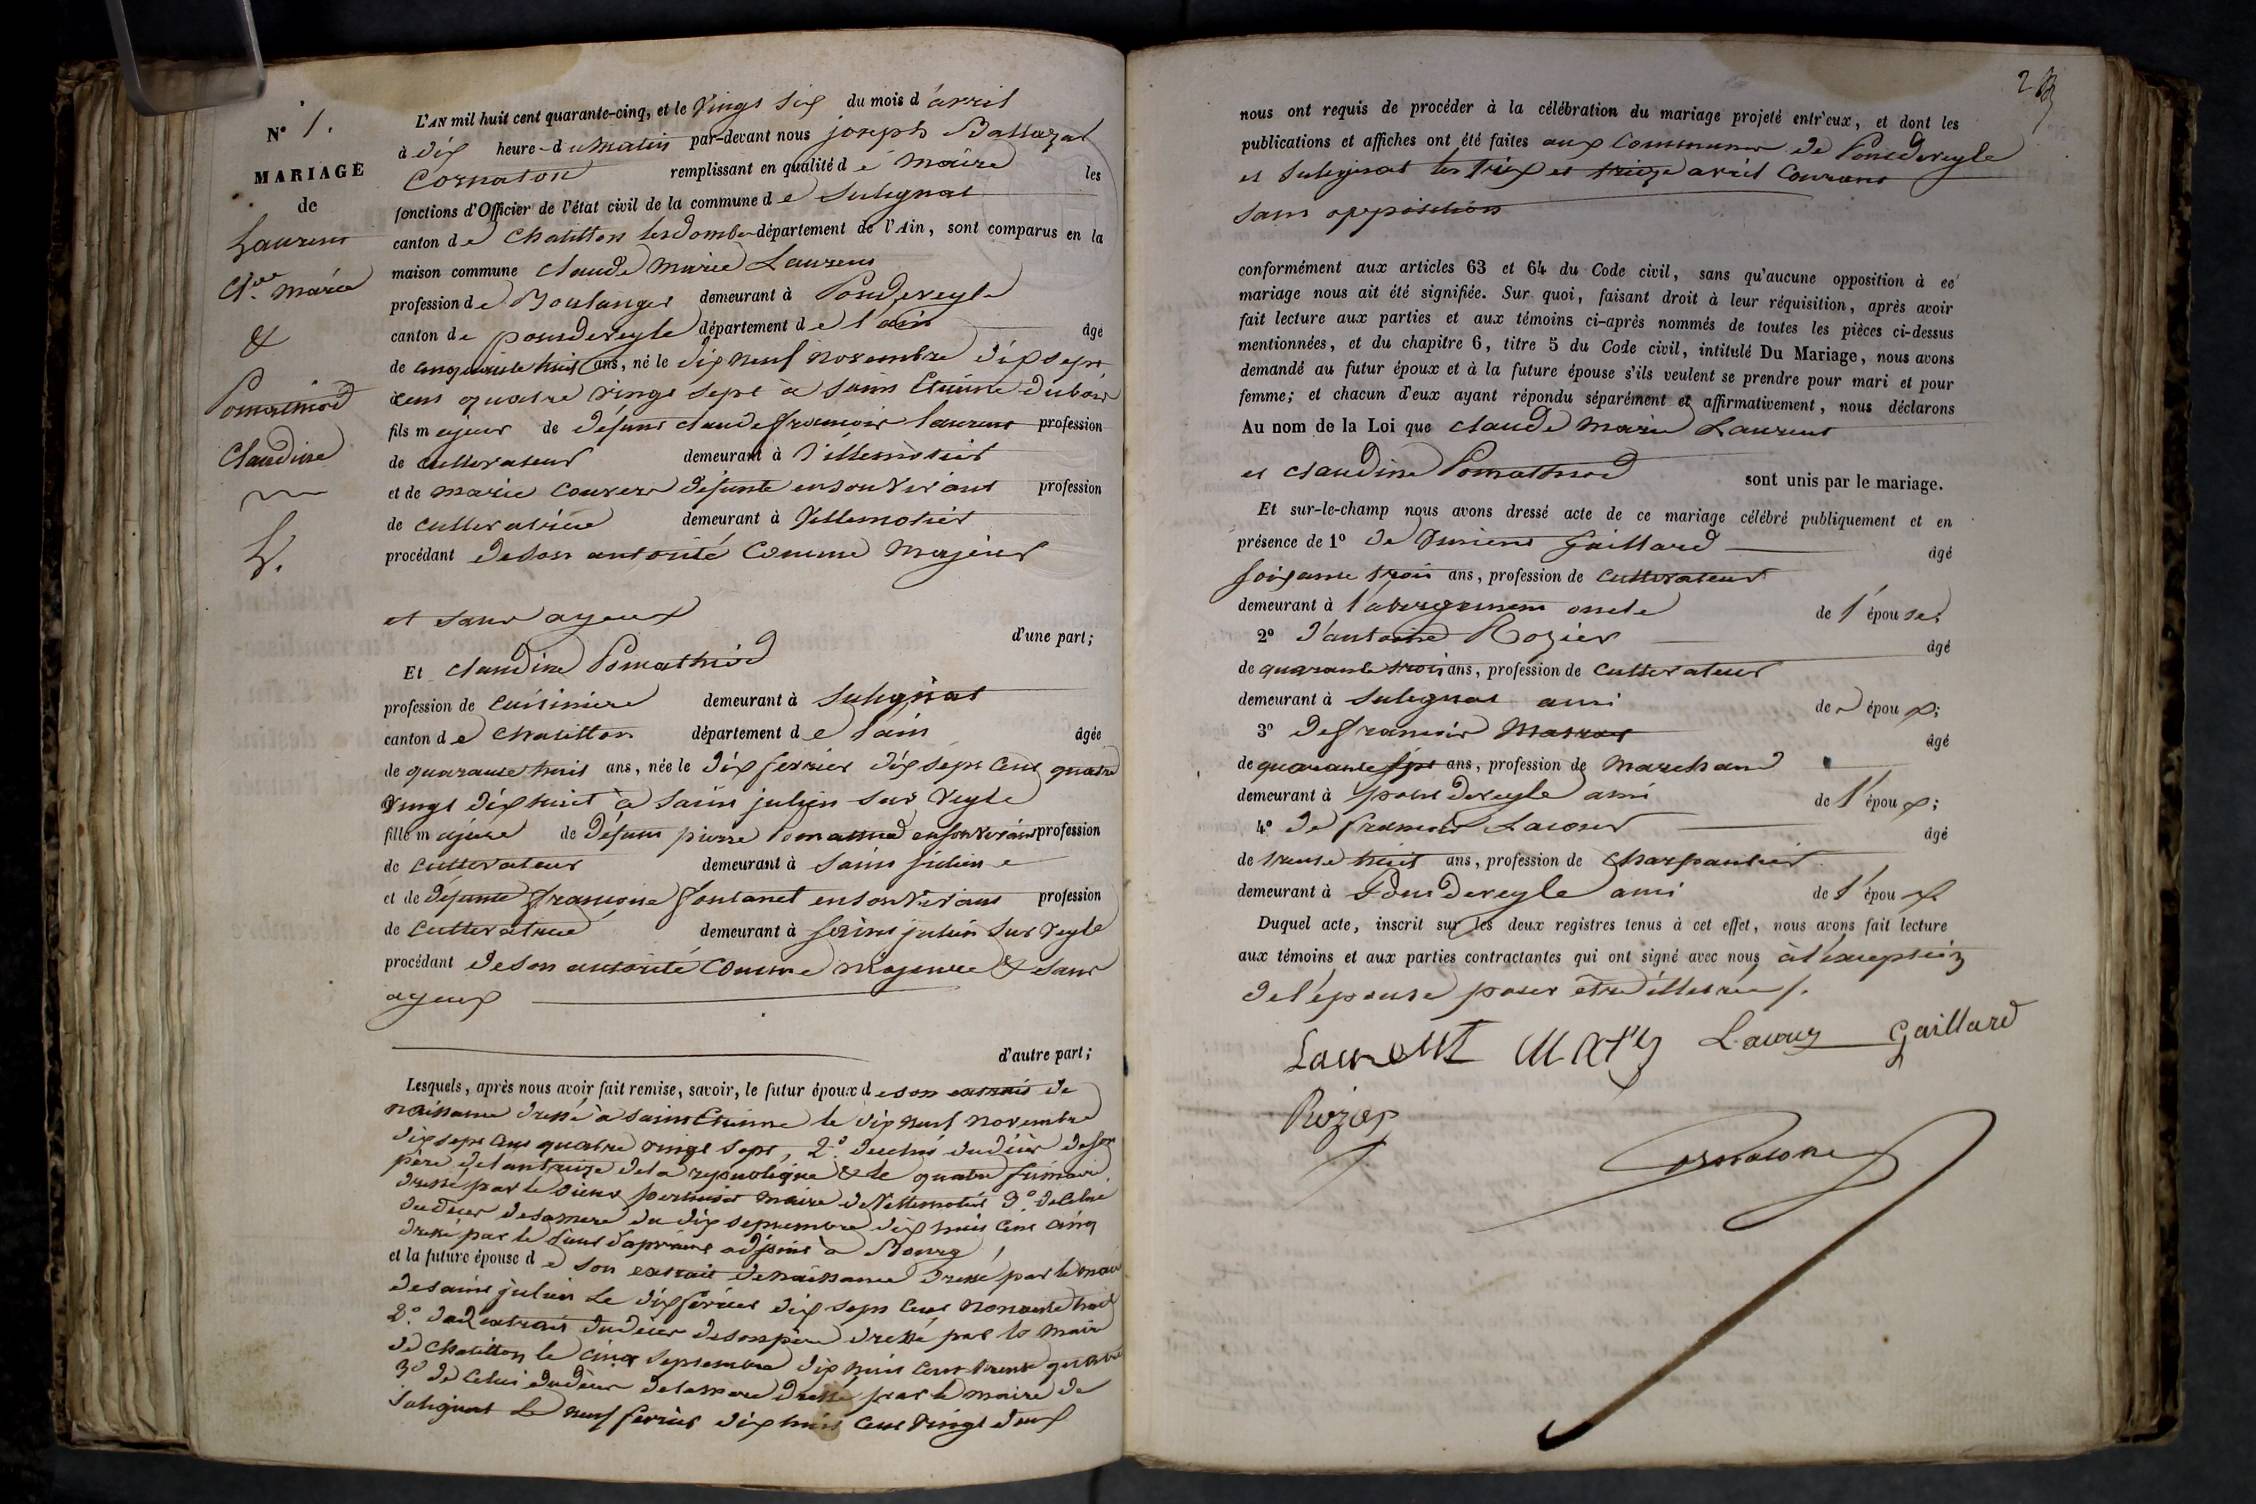 N° 1.
MARIAGE
de
Laurent
Cl.de Marie
&
Pomathiod
Claudine
L'AN mil huit cent quarante-cinq, et le vingt six du mois d'avril
à dix heure du matin par-devant nous joseph Baltazat
Cornaton remplissant en qualité de Maire les
fonctions d'Officier de l'état civil de la commune de Sulignat
canton de Chatillon les dombes département de l'Ain, sont comparus en la
maison commune Claude Marie Laurent
profession de Boulanger demeurant à Pontdeveyle
canton de pontdeveyle département de l'ain âgé
de cinquante huit ans, né le dix neuf novembre dix sept
cent quatre vingt sept à saint Etienne dubois
fils majeur de défunt claude françois laurent profession
de cultivateur demeurant à Villemotier
et de marie défunte en son vivant profession
de cultivatrice demeurant à Villemotier
procédant de son autorité comme Majeur
et sans ayeux
d'une part;
Et claudine Pomathiod
profession de cuisiniere demeurant à Sulignat
canton de Chatillon département de l'ain âgée
de quarante huit ans, née le dix fevrier dix sept cent quatre
vingt dix huit à saint julien sur veyle
fille majeure de défunt pierre Pomathiod en son vivant profession
de cultivateur demeurant à saint julien
et de défunte françoise fontanet en son vivant profession
de cultivatrice demeurant à saint julien sur veyle
procédant de son autorité comme majeure & sans
ayeux
d'autre part;
Lesquels, après nous avoir fait remise, savoir, le futur époux de son extrait de
naissance dressé à saint Etienne le dix neuf novembre
dix sept cent quatre vingt sept, 2.° du décès de son
père de l'an treize de la republique & le quatre frimaire
dressé par le sieur maire de Villemotier 3.° de celui
du décès de sa mere du dix septembre dix huit cent cinq
dressé par le sieur adjoint à Bourg
et la future épouse de son extrait de naissance dressé par le maire
de saint julien le dix fevrier dix sept cent nonante huit
2.° de l'extrait du décès de son père dressé par le maire
de Chatillon le cinq septembre dix huit cent trente quatre
3° de celui du décès de la mere dressé par le maire de
Sulignat le neuf fevrier dix huit cent vingt deux
nous ont requis de procéder à la célébration du mariage projeté entr'eux, et dont les
publications et affiches ont été faites aux communes de Pontdeveyle
et Sulignat les six et treize avril courant
sans opposition
conformément aux articles 63 et 64 du Code civil, sans qu'aucune opposition à ce
mariage nous ait été signifiée. Sur quoi, faisant droit à leur réquisition, après avoir
fait lecture aux parties et aux témoins ci-après nommés de toutes les pièces ci-dessus
mentionnées, et du chapitre 6, titre 5 du Code civil, intitulé Du Mariage, nous avons
demandé au futur époux et à la future épouse s'ils veulent se prendre pour mari et pour
femme; et chacun d'eux ayant répondu séparément et affirmativement, nous déclarons
Au nom de la Loi que claude Marie Laurent
et claudine Pomathiod sont unis par le mariage.
Et sur-le-champ nous avons dressé acte de ce mariage célébré publiquement et en
présence de 1° de Gaillard âgé
soixante trois ans, profession de cultivateur
demeurant à l'abergement oncle de l'épouse;
2° d'antoine Rozier âgé
de quarante trois ans, profession de cultivateur
demeurant à Sulignat ami de l'époux;
3° de françois âgé
de quarante sept ans, profession de Marchand
demeurant à pontdeveyle ami de l'époux;
4° de françois Lacour âgé
de trente huit ans, profession de Charpentier
demeurant à Pontdeveyle ami de l'époux
Duquel acte, inscrit sur les deux registres tenus à cet effet, nous avons fait lecture
aux témoins et aux parties contractantes qui ont signé avec nous à l'exception
de l'épouse pour etre illetrée ./.
Laurent Lacour Gaillard
Rozier
Cornaton